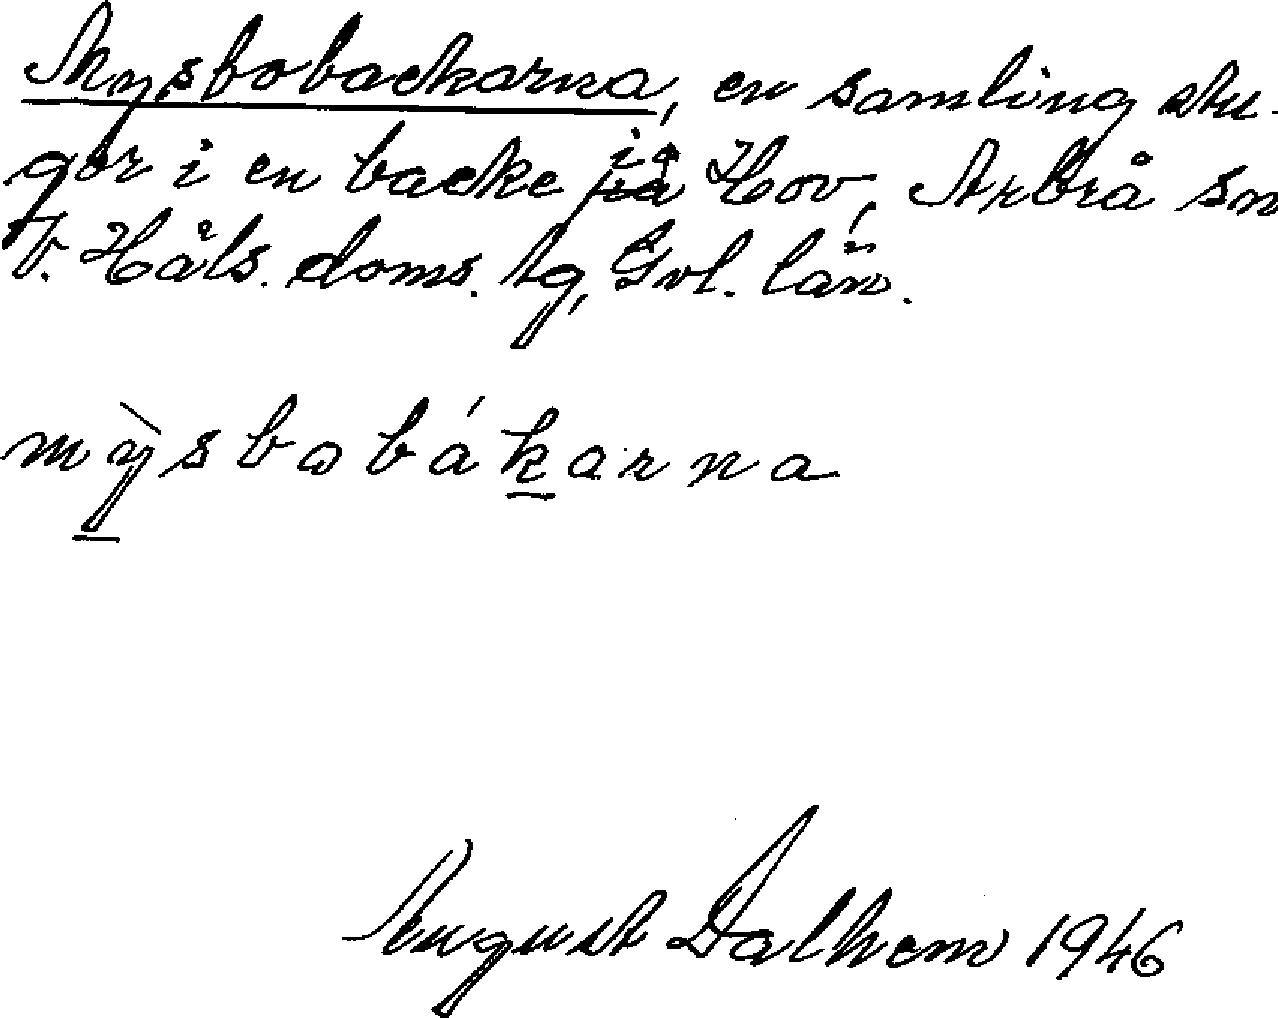 Mysbobackarna, en samling stu-
gor i en backe i Hov, Arbrå sn
V. Häls. doms. tg, Gvl. län.
mỳsbobákarna
August Dalhem 1946